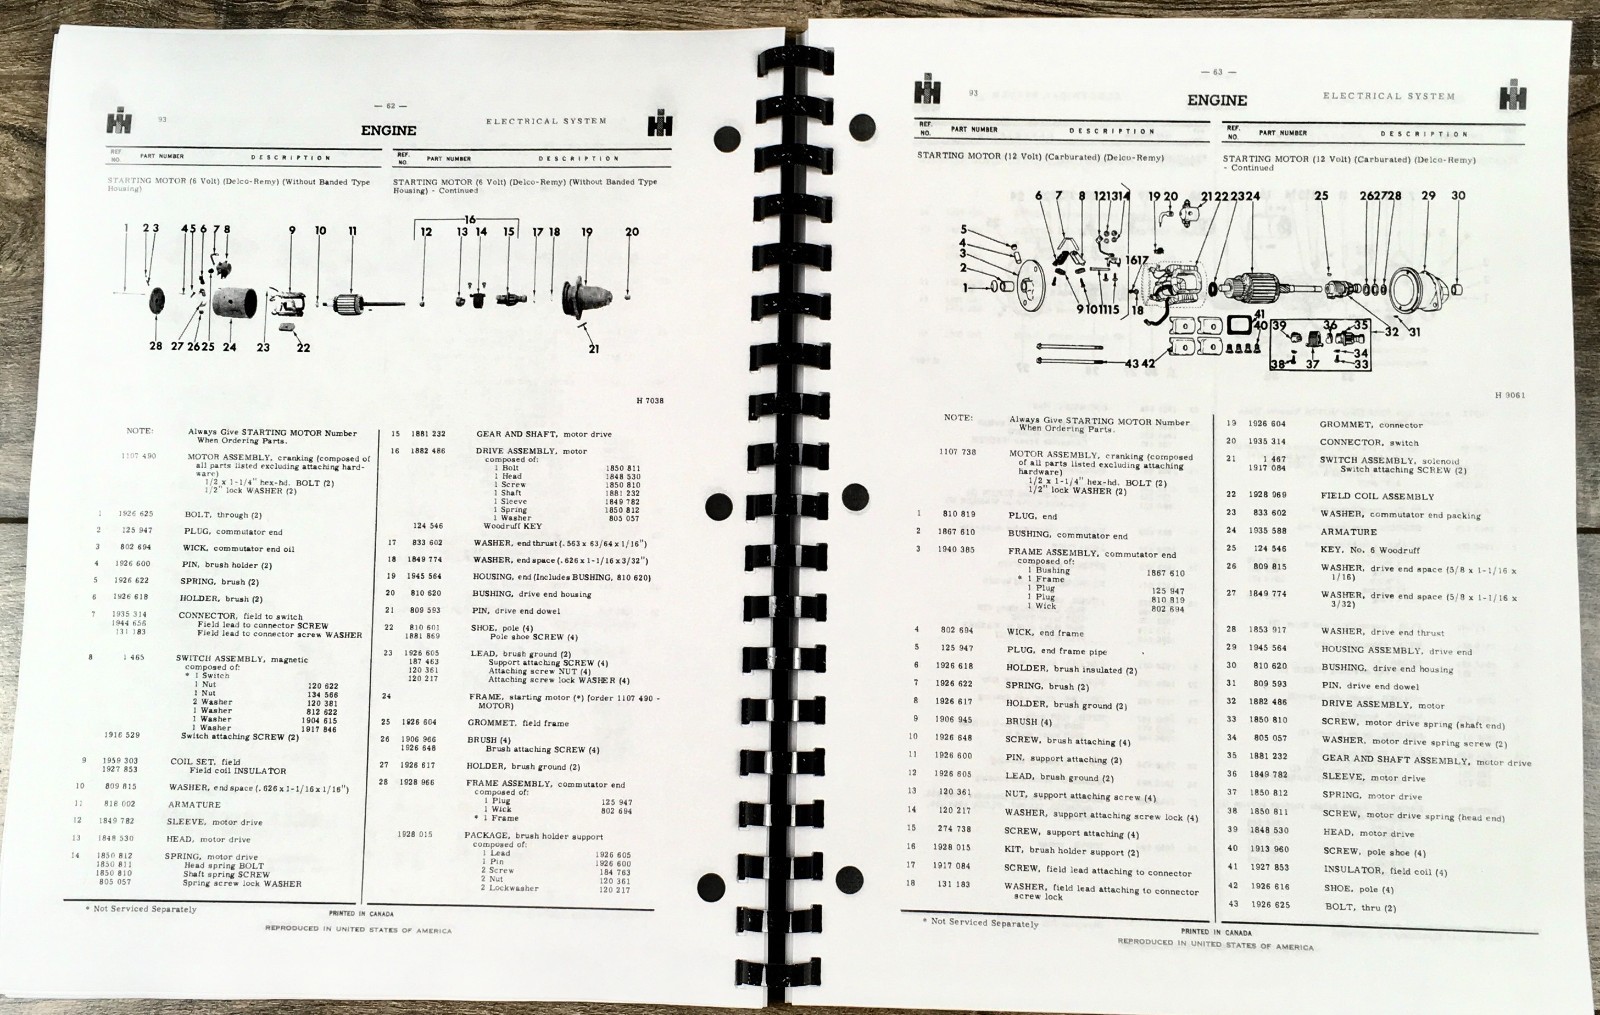 — 62 —
93
ENGINE
ELECTRICAL SYSTEM
REF. NO. PART NUMBER DESCRIPTION
REF. NO. PART NUMBER DESCRIPTION
STARTING MOTOR (6 Volt) (Delco-Remy) (Without Banded Type
Housing)
STARTING MOTOR (6 Volt) (Delco-Remy) (Without Banded Type
Housing) - Continued
16
1 2 3 4 5 6 7 8 9 10 11 12 13 14 15 17 18 19 20
28 27 26 25 24 23 22 21
H 7038
NOTE: Always Give STARTING MOTOR Number
When Ordering Parts.
1107 490 MOTOR ASSEMBLY, cranking (composed of
all parts listed excluding attaching hard-
ware)
1/2 x 1-1/4" hex-hd. BOLT (2)
1/2" lock WASHER (2)
1 1926 625 BOLT, through (2)
2 125 947 PLUG, commutator end
3 802 694 WICK, commutator end oil
4 1926 600 PIN, brush holder (2)
5 1926 622 SPRING, brush (2)
6 1926 618 HOLDER, brush (2)
7 1935 314 CONNECTOR, field to switch
1944 656 Field lead to connector SCREW
131 183 Field lead to connector screw WASHER
8 1 465 SWITCH ASSEMBLY, magnetic
composed of:
* 1 Switch
1 Nut 120 622
1 Nut 134 566
2 Washer 120 381
1 Washer 812 622
1 Washer 1904 615
1 Washer 1917 846
1916 529 Switch attaching SCREW (2)
9 1959 303 COIL SET, field
1927 853 Field coil INSULATOR
10 809 815 WASHER, end space (.626 x 1-1/16 x 1/16")
11 818 002 ARMATURE
12 1849 782 SLEEVE, motor drive
13 1848 530 HEAD, motor drive
14 1850 812 SPRING, motor drive
1850 811 Head spring BOLT
1850 810 Shaft spring SCREW
805 057 Spring screw lock WASHER
15 1881 232 GEAR AND SHAFT, motor drive
16 1882 486 DRIVE ASSEMBLY, motor
composed of:
1 Bolt 1850 811
1 Head 1848 530
1 Screw 1850 810
1 Shaft 1881 232
1 Sleeve 1849 782
1 Spring 1850 812
1 Washer 805 057
124 546 Woodruff KEY
17 833 602 WASHER, end thrust (.563 x 63/64 x 1/16")
18 1849 774 WASHER, end space (.626 x 1-1/16 x 3/32")
19 1945 564 HOUSING, end (Includes BUSHING, 810 620)
20 810 620 BUSHING, drive end housing
21 809 593 PIN, drive end dowel
22 810 601 SHOE, pole (4)
1881 869 Pole shoe SCREW (4)
23 1926 605 LEAD, brush ground (2)
187 463 Support attaching SCREW (4)
120 361 Attaching screw NUT (4)
120 217 Attaching screw lock WASHER (4)
24 FRAME, starting motor (*) (order 1107 490 -
MOTOR)
25 1926 604 GROMMET, field frame
26 1906 966 BRUSH (4)
1926 648 Brush attaching SCREW (4)
27 1926 617 HOLDER, brush ground (2)
28 1928 966 FRAME ASSEMBLY, commutator end
composed of:
1 Plug 125 947
1 Wick 802 694
* 1 Frame
1928 015 PACKAGE, brush holder support
composed of:
1 Lead 1926 605
1 Pin 1926 600
2 Screw 184 763
2 Nut 120 361
2 Lockwasher 120 217
* Not Serviced Separately
PRINTED IN CANADA
REPRODUCED IN UNITED STATES OF AMERICA
— 63 —
93
ENGINE
ELECTRICAL SYSTEM
REF. NO. PART NUMBER DESCRIPTION
REF. NO. PART NUMBER DESCRIPTION
STARTING MOTOR (12 Volt) (Carburated) (Delco-Remy)
STARTING MOTOR (12 Volt) (Carburated) (Delco-Remy)
- Continued
6 7 8 12 13 14 19 20 21 22 23 24 25 26 27 28 29 30
5
4
3
2
1
16 17
9 10 11 15 18
41
40
39 36 35 32 31
34
38 37 33
43 42
H 9061
NOTE: Always Give STARTING MOTOR Number
When Ordering Parts.
1107 738 MOTOR ASSEMBLY, cranking (composed
of all parts listed excluding attaching
hardware)
1/2 x 1-1/4" hex-hd. BOLT (2)
1/2" lock WASHER (2)
1 810 819 PLUG, end
2 1867 610 BUSHING, commutator end
3 1940 385 FRAME ASSEMBLY, commutator end
composed of:
1 Bushing 1867 610
* 1 Frame
1 Plug 125 947
1 Plug 810 819
1 Wick 802 694
4 802 694 WICK, end frame
5 125 947 PLUG, end frame pipe
6 1926 618 HOLDER, brush insulated (2)
7 1926 622 SPRING, brush (2)
8 1926 617 HOLDER, brush ground (2)
9 1906 945 BRUSH (4)
10 1926 648 SCREW, brush attaching (4)
11 1926 600 PIN, support attaching (2)
12 1926 605 LEAD, brush ground (2)
13 120 361 NUT, support attaching screw (4)
14 120 217 WASHER, support attaching screw lock (4)
15 274 738 SCREW, support attaching (4)
16 1928 015 KIT, brush holder support (2)
17 1917 084 SCREW, field lead attaching to connector
18 131 183 WASHER, field lead attaching to connector
screw lock
19 1926 604 GROMMET, connector
20 1935 314 CONNECTOR, switch
21 1 467 SWITCH ASSEMBLY, solenoid
1917 084 Switch attaching SCREW (2)
22 1928 969 FIELD COIL ASSEMBLY
23 833 602 WASHER, commutator end packing
24 1935 588 ARMATURE
25 124 546 KEY, No. 6 Woodruff
26 809 815 WASHER, drive end space (5/8 x 1-1/16 x
1/16)
27 1849 774 WASHER, drive end space (5/8 x 1-1/16 x
3/32)
28 1853 917 WASHER, drive end thrust
29 1945 564 HOUSING ASSEMBLY, drive end
30 810 620 BUSHING, drive end housing
31 809 593 PIN, drive end dowel
32 1882 486 DRIVE ASSEMBLY, motor
33 1850 810 SCREW, motor drive spring (shaft end)
34 805 057 WASHER, motor drive spring screw (2)
35 1881 232 GEAR AND SHAFT ASSEMBLY, motor drive
36 1849 782 SLEEVE, motor drive
37 1850 812 SPRING, motor drive
38 1850 811 SCREW, motor drive spring (head end)
39 1848 530 HEAD, motor drive
40 1913 960 SCREW, pole shoe (4)
41 1927 853 INSULATOR, field coil (4)
42 1926 616 SHOE, pole (4)
43 1926 625 BOLT, thru (2)
* Not Serviced Separately
PRINTED IN CANADA
REPRODUCED IN UNITED STATES OF AMERICA